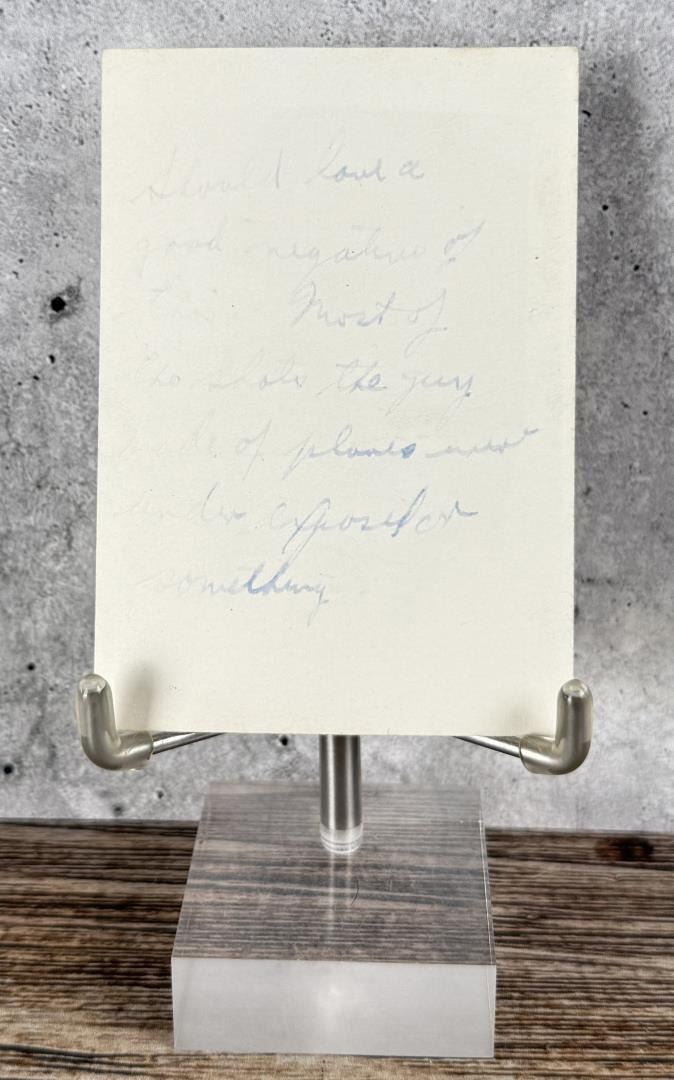 Should have a
good negative of
this Most of
the shots the guy
made of planes were
under exposed or
something